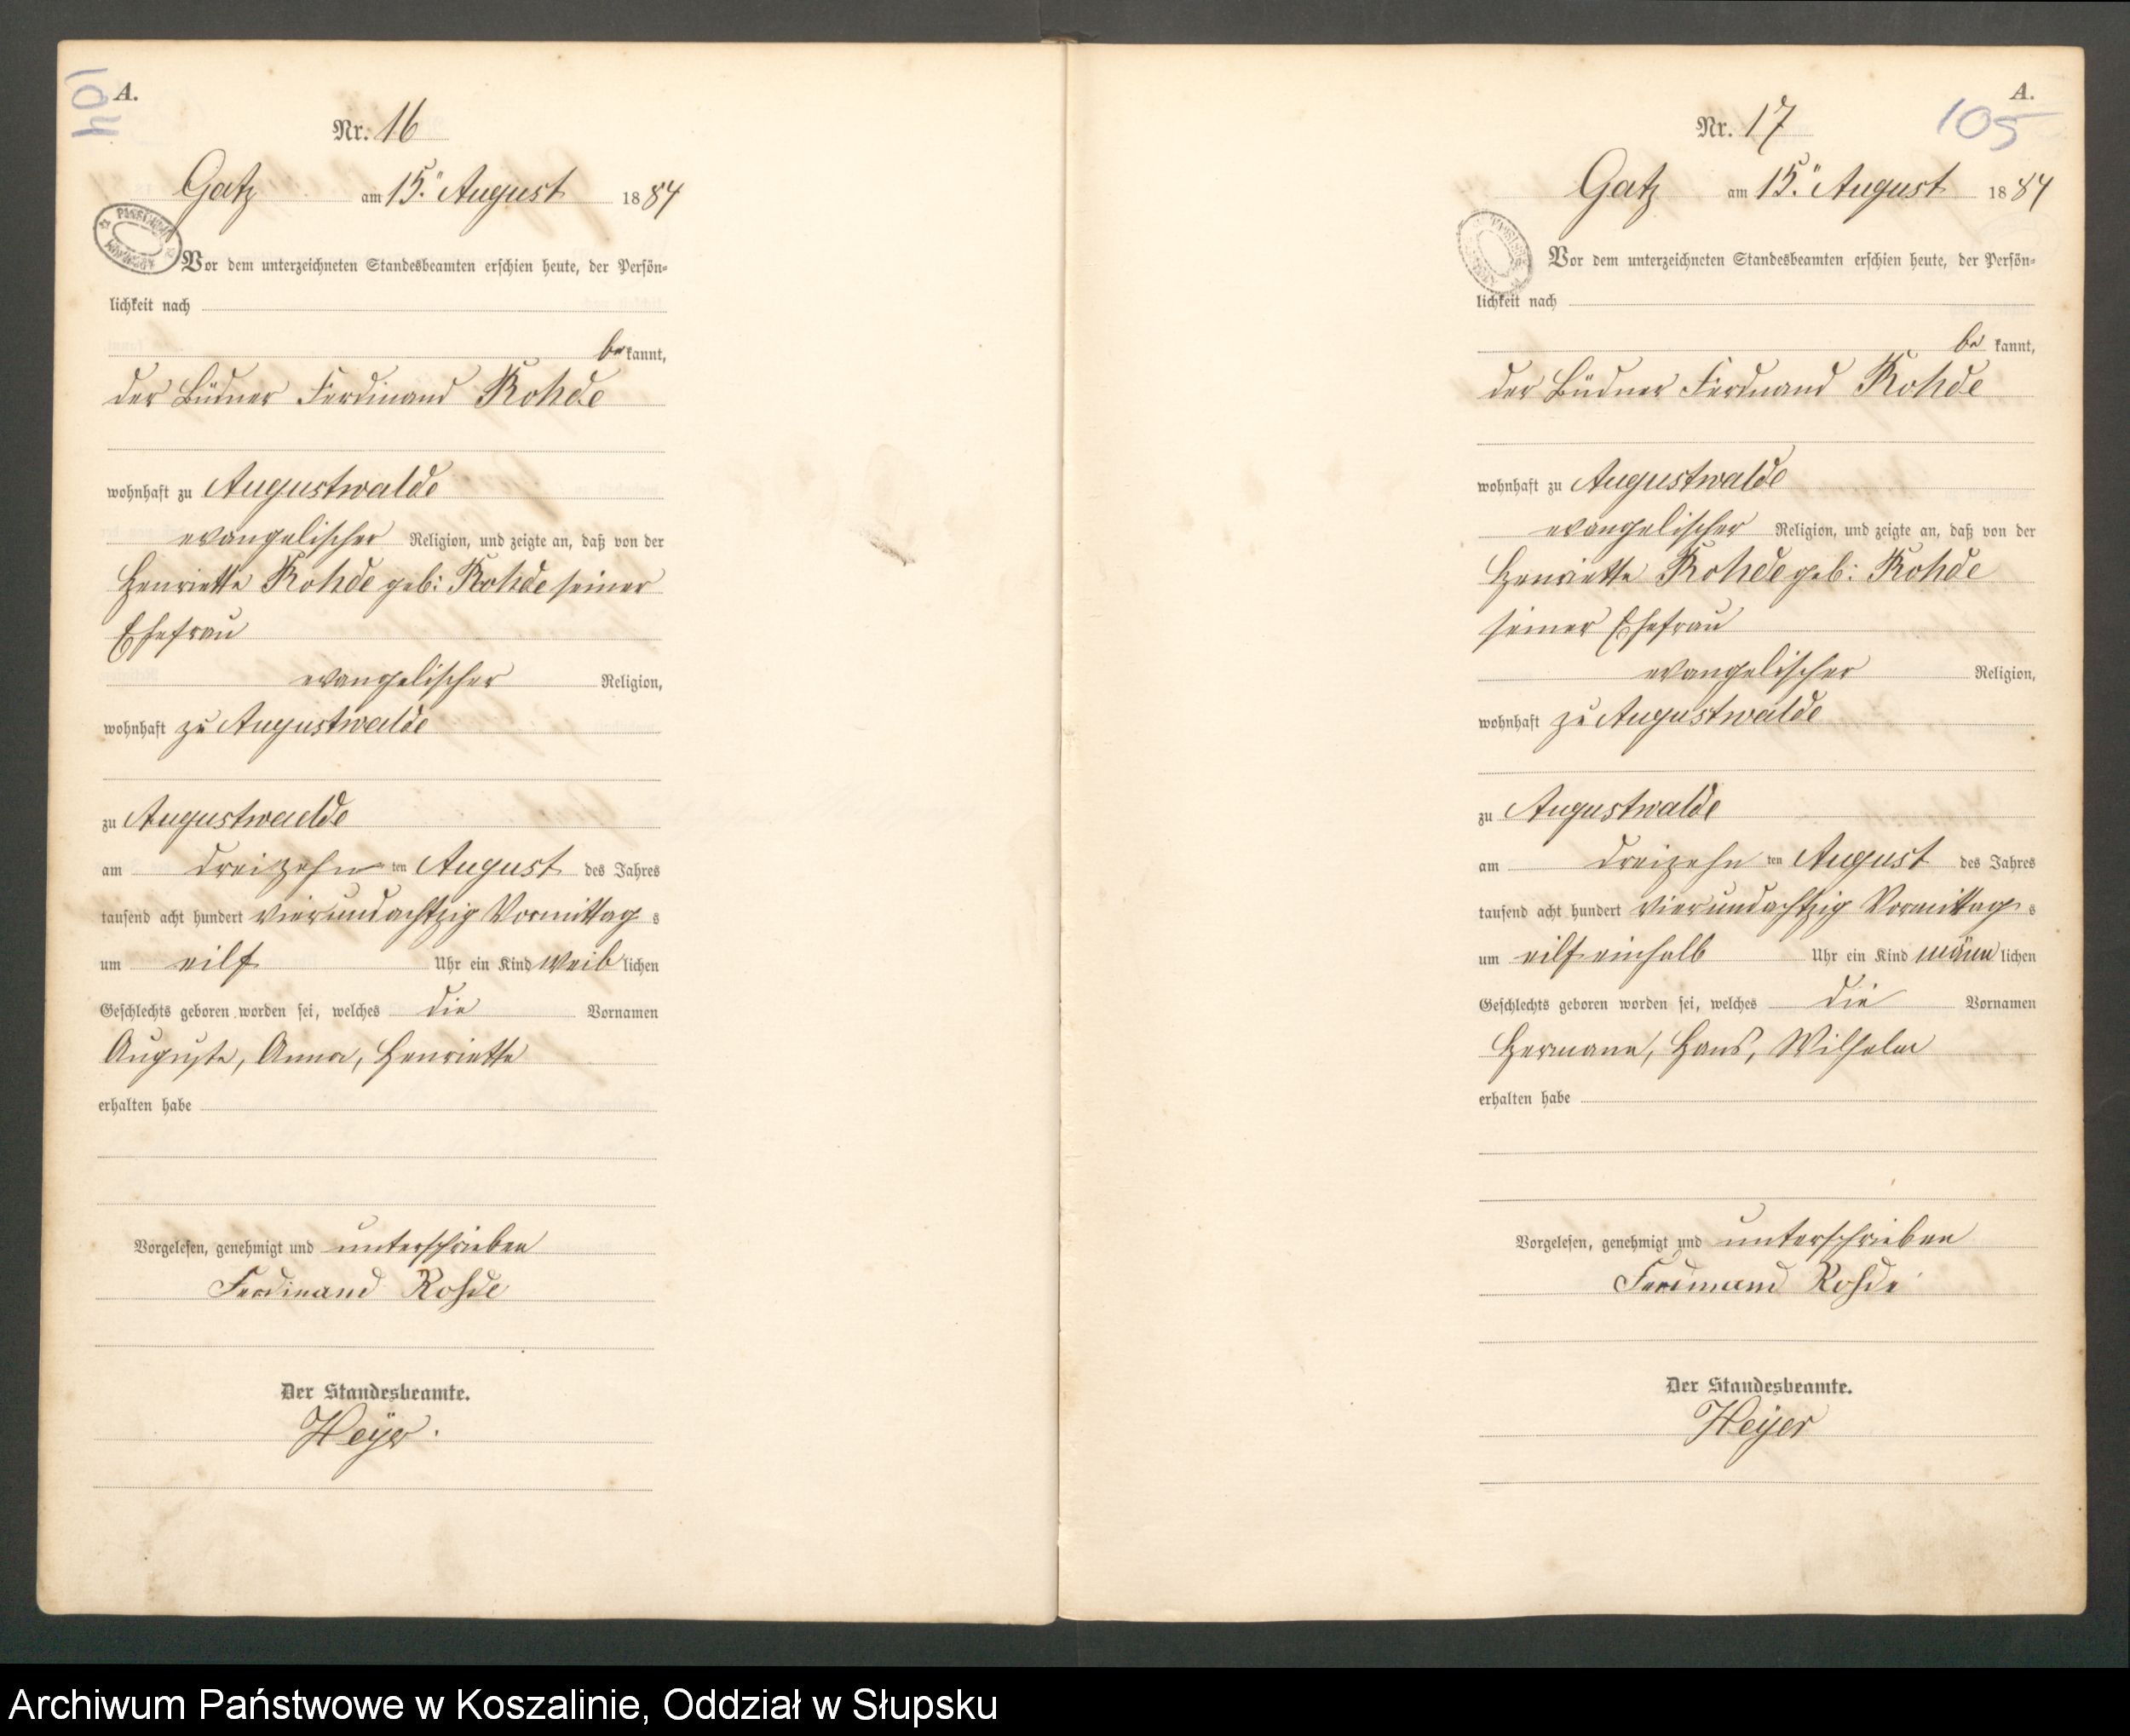 104
A.
Nr. 16
Gatz am 15. August 1884
Vor dem unterzeichneten Standesbeamten erschien heute, der Persön-
lichkeit nach
be kannt,
der Büdner Ferdinand Rohde
wohnhaft zu Augustwalde
evangelischer Religion, und zeigte an, daß von der
Henriette Rohde geb: Rohde seiner
Ehefrau
evangelischer Religion,
wohnhaft zu Augustwalde
zu Augustwalde
am dreizehn ten August des Jahres
tausend acht hundert vierundachtzig Vormittag s
um eilf Uhr ein Kind weib lichen
Geschlechts geboren worden sei, welches die Vornamen
Auguste, Anna, Henriette
erhalten habe
Vorgelesen, genehmigt und unterschrieben
Ferdinand Rohde
Der Standesbeamte.
Heyer.
A.
105
Nr. 17
Gatz am 15. August 1884
Vor dem unterzeichneten Standesbeamten erschien heute, der Persön-
lichkeit nach
be kannt,
der Büdner Ferdinand Rohde
wohnhaft zu Augustwalde
evangelischer Religion, und zeigte an, daß von der
Henriette Rohde geb: Rohde
seiner Ehefrau
evangelischer Religion,
wohnhaft zu Augustwalde
zu Augustwalde
am dreizehn ten August des Jahres
tausend acht hundert vierundachtzig Vormittag s
um eilf einhalb Uhr ein Kind männ lichen
Geschlechts geboren worden sei, welches die Vornamen
Hermann, Hans, Wilhelm
erhalten habe
Vorgelesen, genehmigt und unterschrieben
Ferdinand Rohde
Der Standesbeamte.
Heyer
Archiwum Państwowe w Koszalinie, Oddział w Słupsku